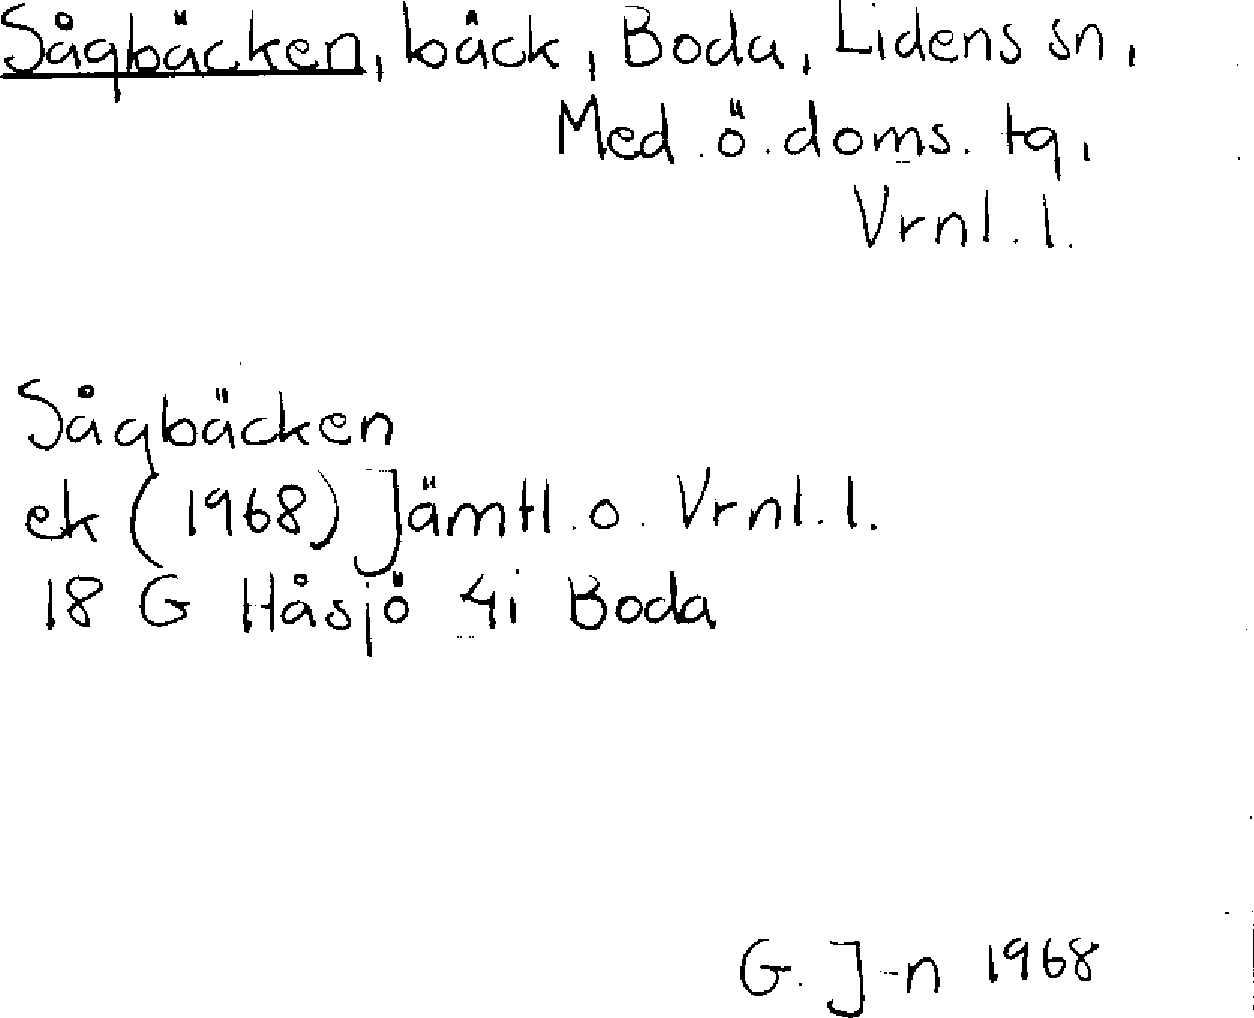 Sågbäcken, bäck, Boda, Lidens sn,
Med. ö. doms. tg,
Vrnl. l.
Sågbäcken
ek (1968) Jämtl. o. Vrnl. l.
18 G Håsjö 4i Boda
G. J-n 1968